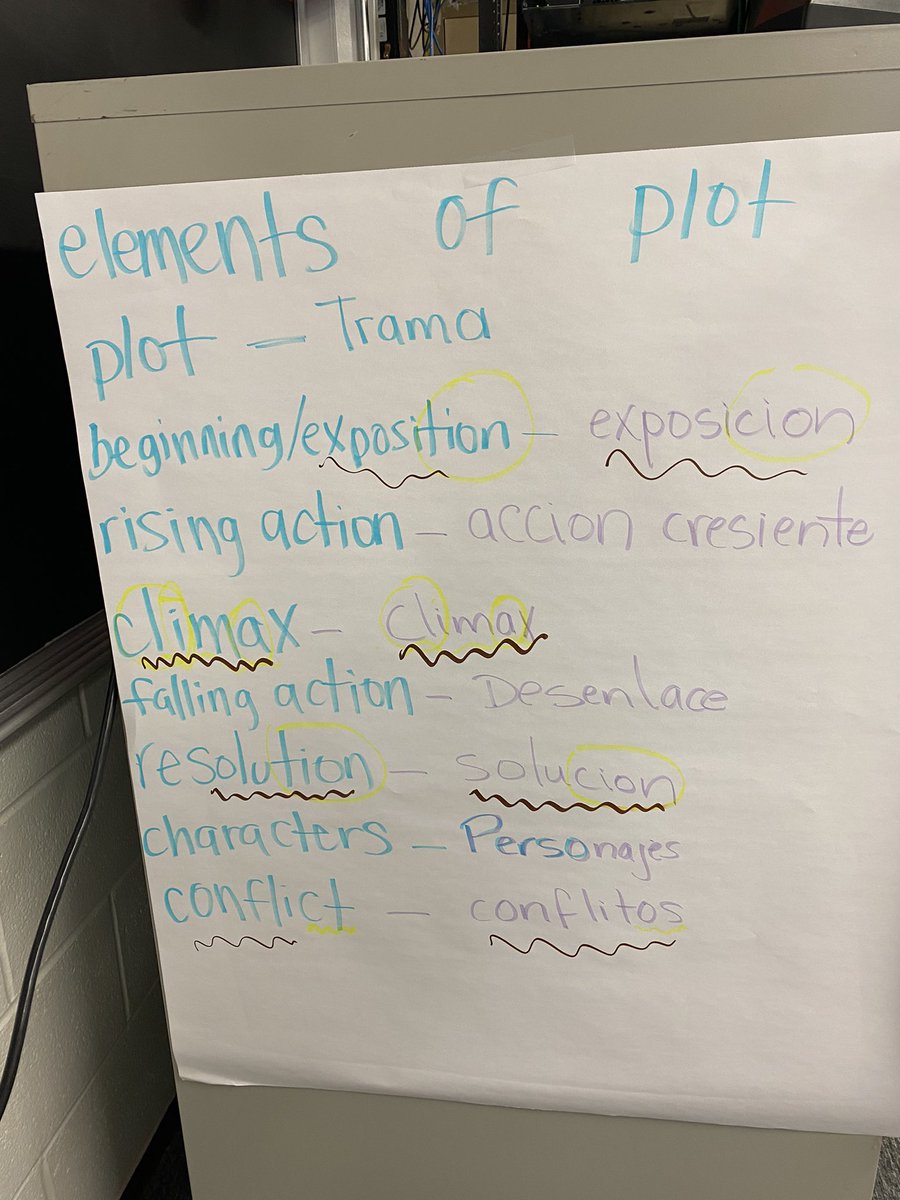 elements of plot
plot - Trama
beginning/exposition - exposicion
rising action - accion cresiente
climax - climax
falling action - Desenlace
resolution - solucion
characters - Personajes
conflict - conflitos